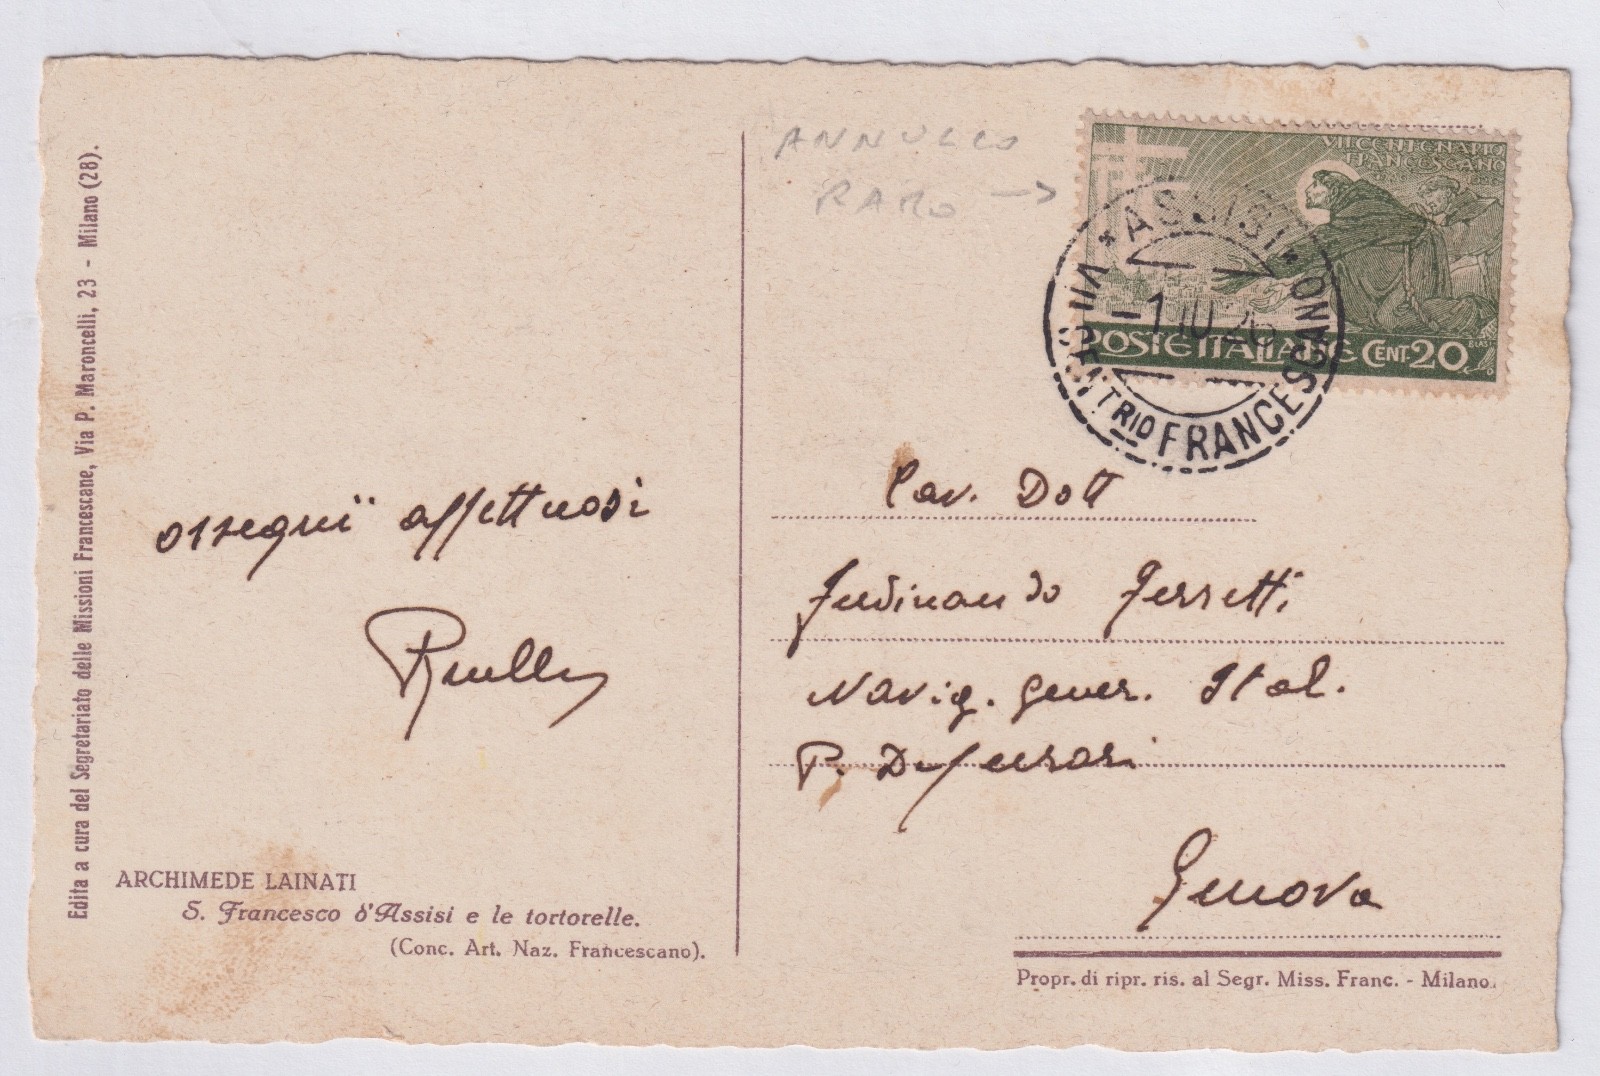 Edita a cura del Segretariato delle Missioni Francescane, Via P. Maroncelli, 23 - Milano (28).
ossequï affettuosi
ARCHIMEDE LAINATI
S. Francesco d'Assisi e le tortorelle.
(Conc. Art. Naz. Francescano).
ANNULLO
RARO →
VII CENTENARIO
FRANCESCANO
POSTE ITALIANE CENT. 20
* ASSISI *
VII CENTRIO FRANCESCANO
Cav. Dott
Ferdinando Ferretti
Navig. Gener. Ital.
P. Deferrari
Genova
Propr. di ripr. ris. al Segr. Miss. Franc. - Milano.